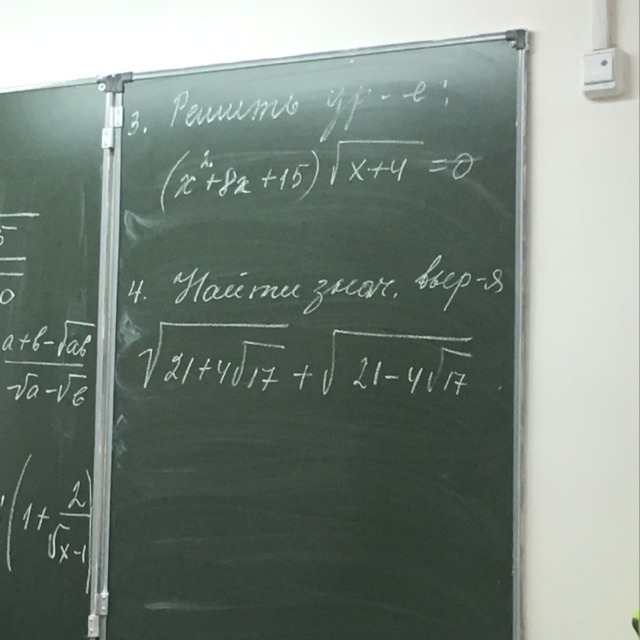 5
0
a+b-√ab
√a-√b
(1+ 2
√x-1)
3. Решить ур-е:
(x²+8x+15)√x+4 =0
4. Найти знач. выр-я
√21+4√17 + √21-4√17